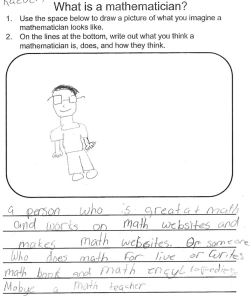 What is a mathematician?
1. Use the space below to draw a picture of what you imagine a
mathematician looks like.
2. On the lines at the bottom, write out what you think a
mathematician is, does, and how they think.
a person who is great at math
and works on math websites and
makes math websites. Or someone
who does math for live or writes
math book and math
Mabye a math teacher